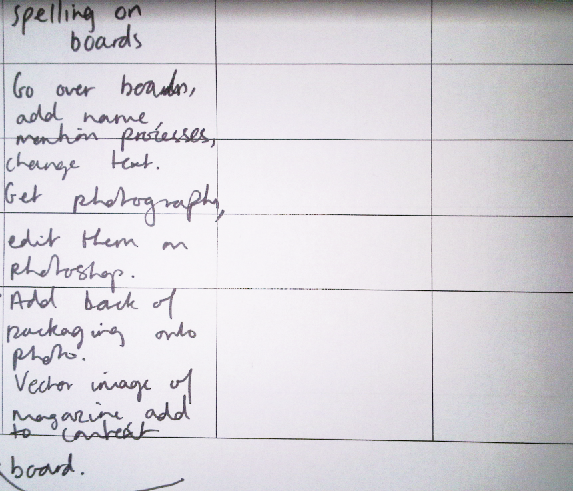 Spelling on
boards
Go over boards,
add name,
mention processes,
change text.
Get photography,
edit them on
photoshop.
Add back of
packaging onto
photo.
Vector image of
magazine add
to context
board.